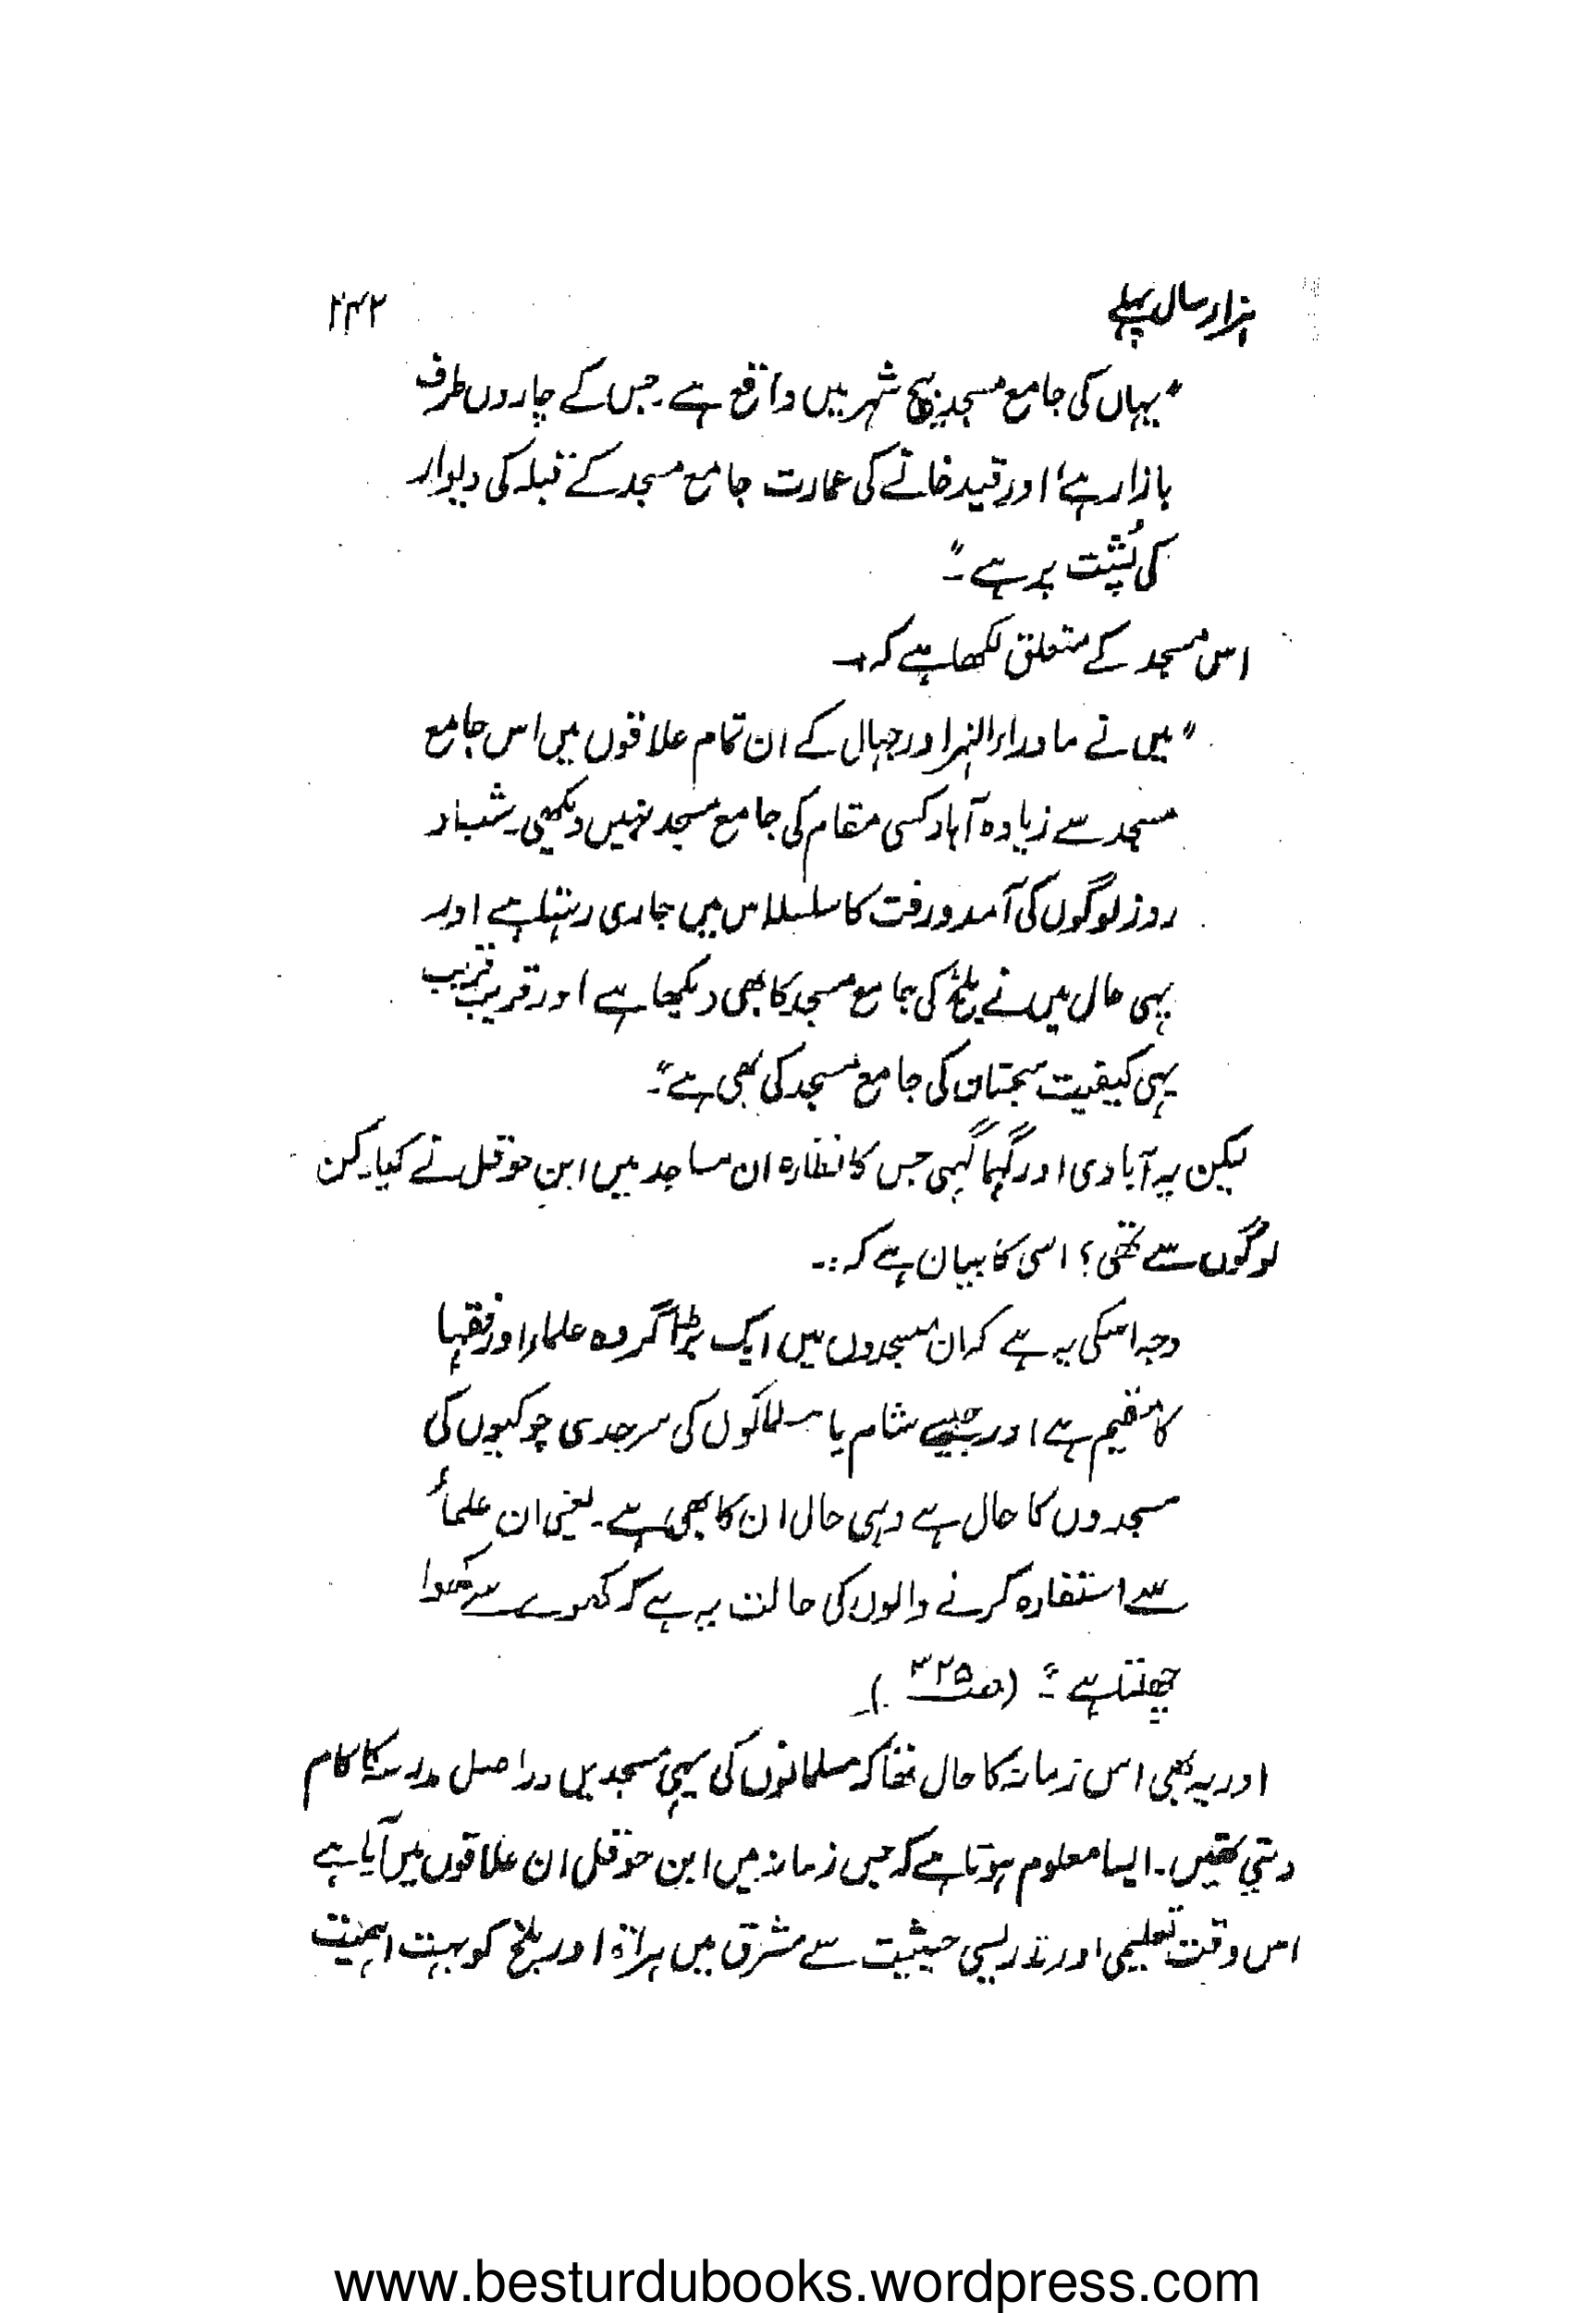 ہزار سال پہلے ۲۴۲
"یہاں کی جامع مسجد بیچ شہر میں واقع ہے۔ جس کے چاروں طرف
بازار ہے، اور قید خانے کی عمارت جامع مسجد کے قبلہ کی دیوار
کی پُشت پر ہے۔"
اس مسجد کے متعلق لکھا ہے کہ:۔
"میں نے ماوراء النہر اور جبال کے ان تمام علاقوں میں اس جامع
مسجد سے زیادہ آباد کسی مقام کی جامع مسجد نہیں دیکھی۔ شبانہ
روز لوگوں کی آمد ورفت کا سلسلہ اس میں جاری رہتا ہے اور
یہی حال میں نے بلخ کی جامع مسجد کا بھی دیکھا ہے اور قریب قریب
یہی کیفیت سجستان کی جامع مسجد کی بھی ہے"۔
لیکن یہ آبادی اور گہما گہمی جس کا نظارہ ان مساجد میں ابن حوقل نے کیا۔ کن
لوگوں سے تھی؟ اسی کا بیان ہے کہ:۔
وجہ اسکی یہ ہے کہ ان مسجدوں میں ایک بڑا گروہ علماء اور فقہا
کا مقیم ہے اور جیسے شام یا مسلمانوں کی سرحدی چوکیوں کی
مسجدوں کا حال ہے وہی حال ان کا بھی ہے۔ یعنی ان علماءُ
سے استفادہ کرنے والوں کی حالت یہ ہے کہ کھوے سے کھوا
چھلتا ہے"۔ (صـ۳۲۵)
اور یہ بھی اس زمانہ کا حال تھا کہ مسلمانوں کی یہی مسجدیں دراصل مدرسہ کا کام
دیتی تھیں۔ ایسا معلوم ہوتا ہے کہ جس زمانہ میں ابن حوقل ان علاقوں میں آیا ہے
اس وقت تعلیمی اور تدریسی حیثیت سے مشرق میں ہراۃ اور بلخ کو بہت اہمیت
www.besturdubooks.wordpress.com